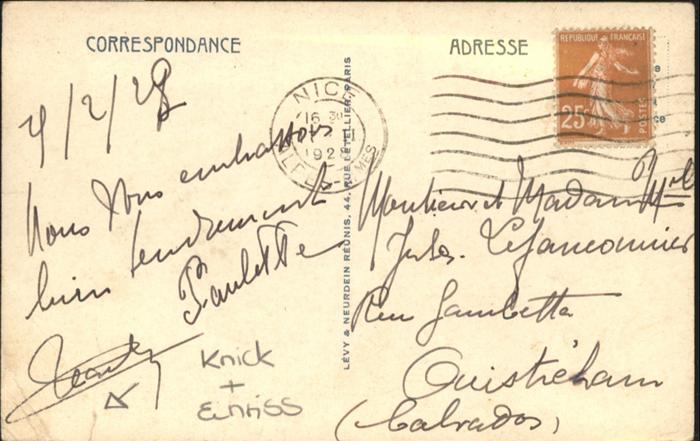 CORRESPONDANCE
ADRESSE
REPUBLIQUE FRANÇAISE
25c
POSTES
NICE
16 30
192
ALPES MMES
/2/28
Nous vous embrassons
bien tendrement
Paulette
Knick
+
Einriss
LÉVY & NEURDEIN RÉUNIS, 44, RUE LETELLIER, PARIS
Monsieur et Madame
Jules
Rue Gambetta
Ouistreham
(Calvados)